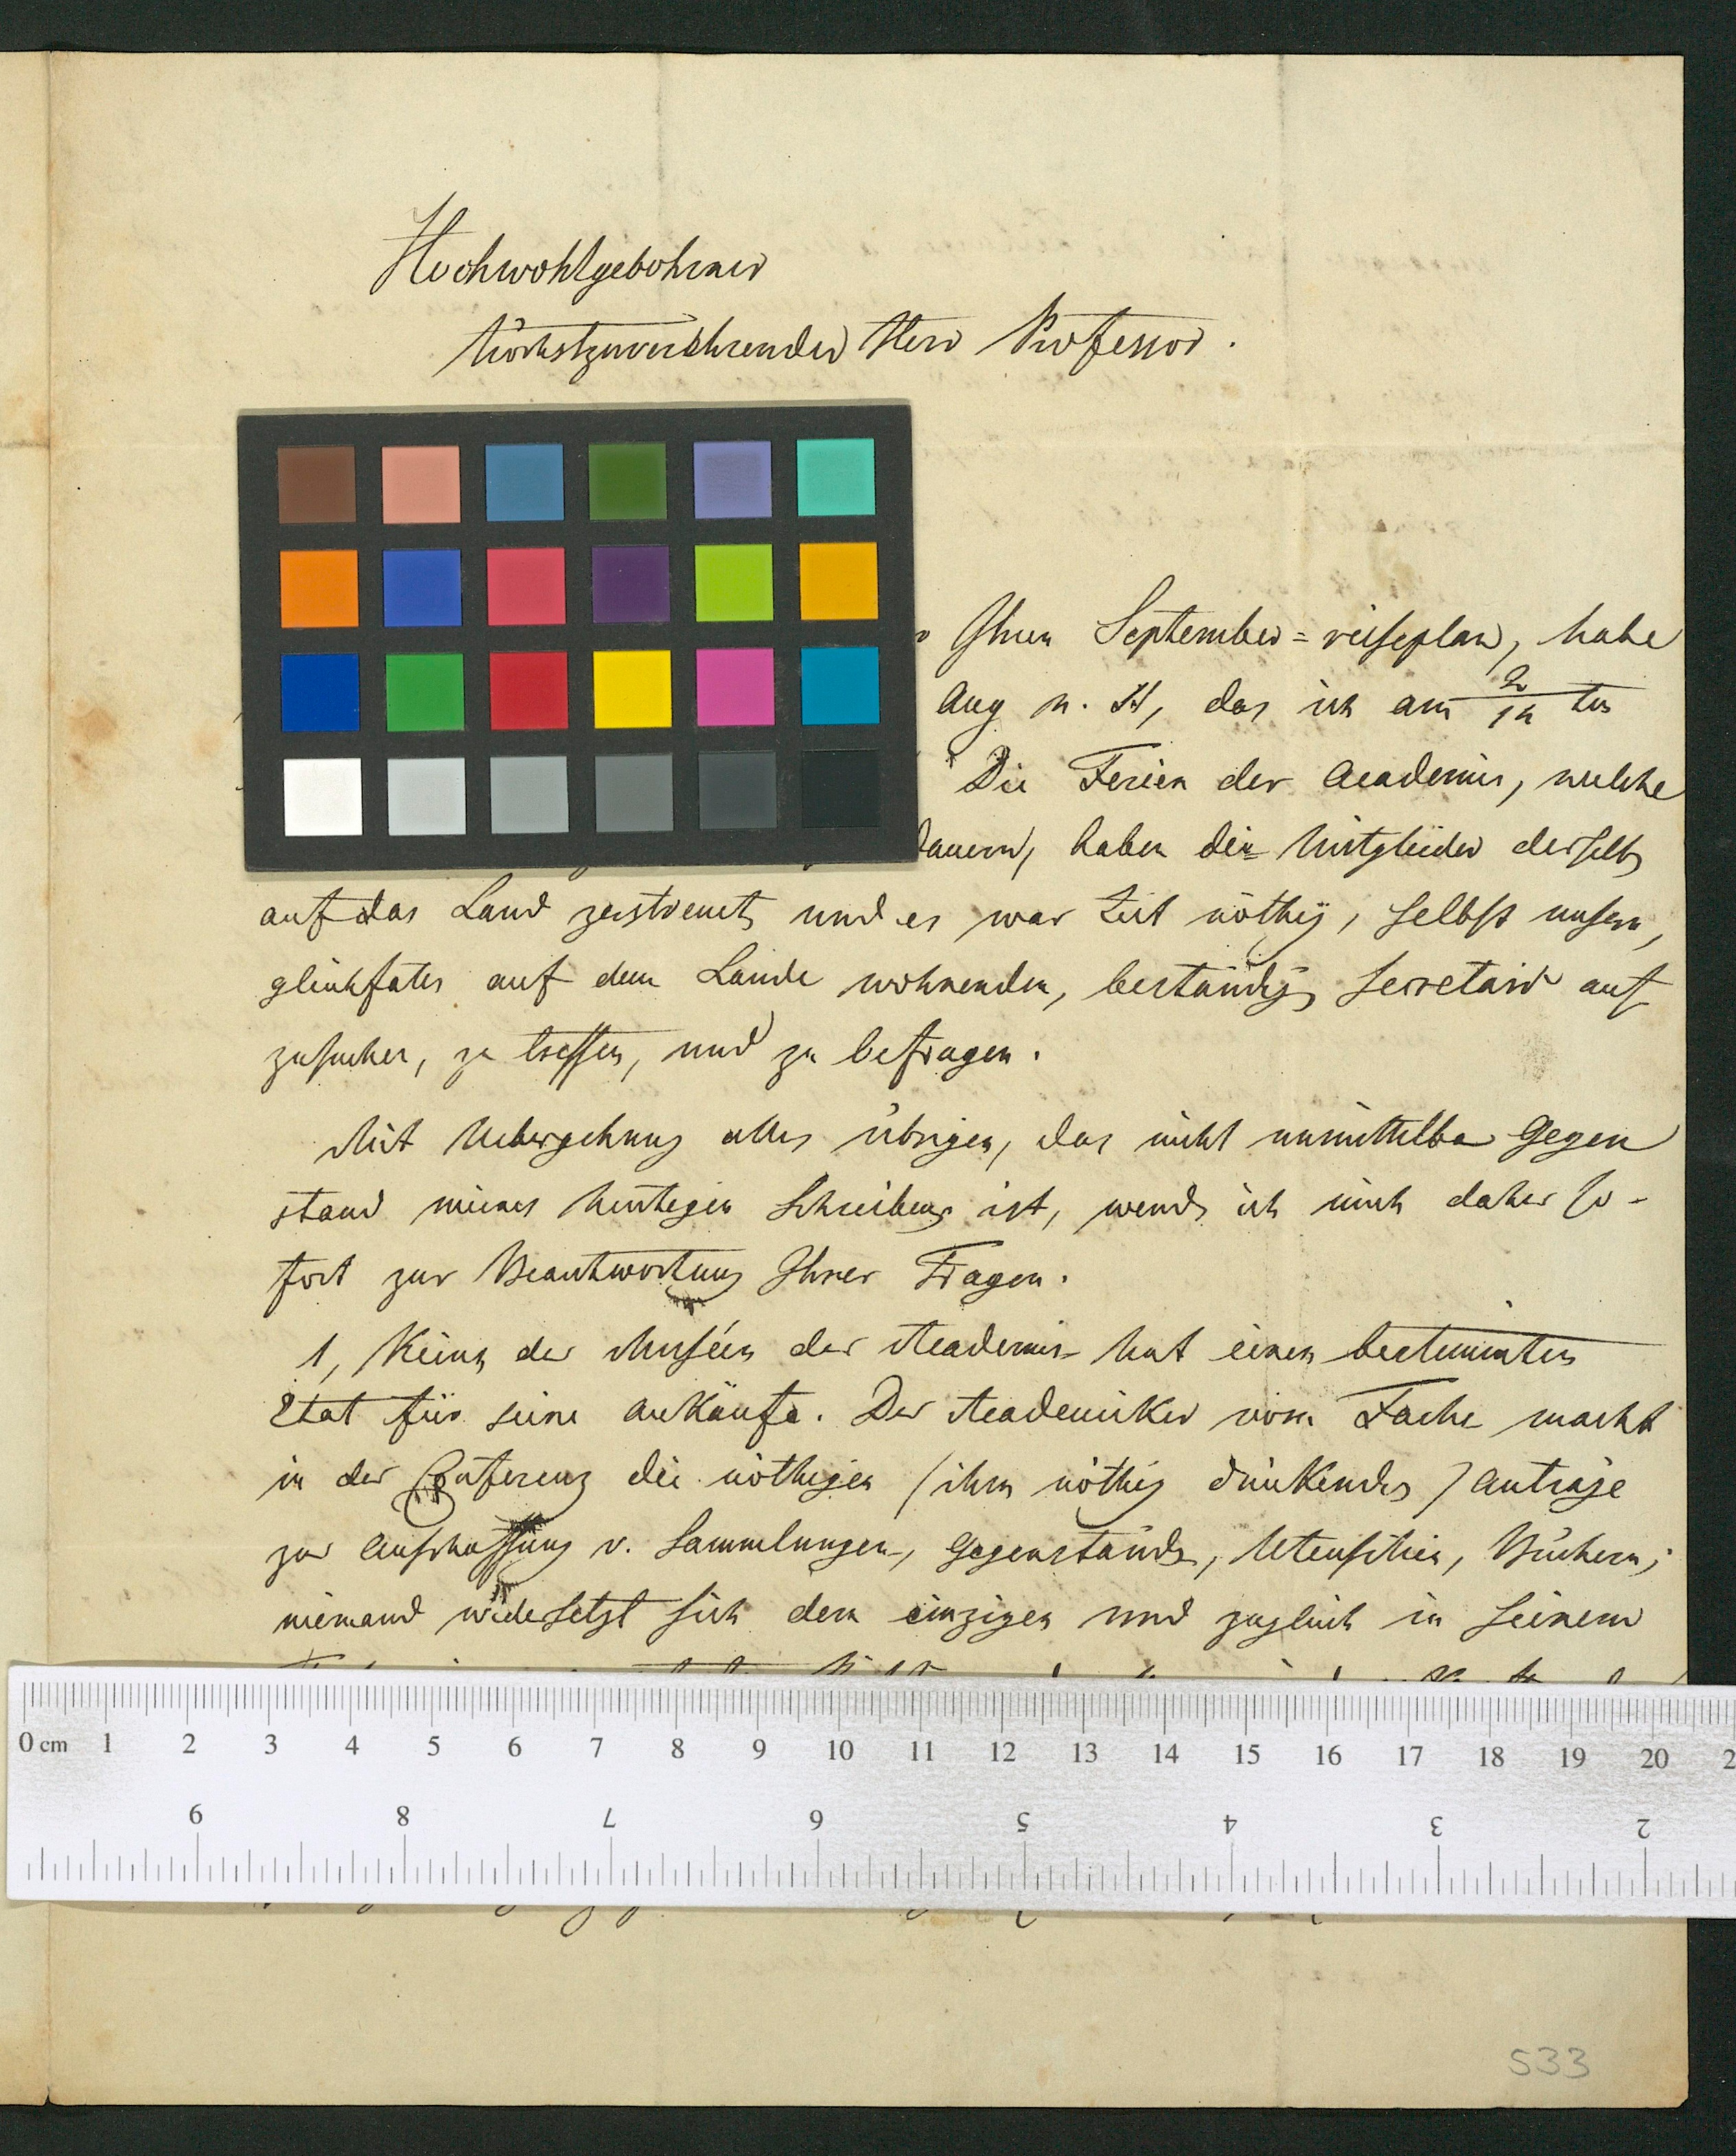 Hochwohlgebohrner
Höchstzuverehrender Herr Professor.
Ihren September=reiseplan, habe
Aug n. St, das ich am 2/14 ten
Die Ferien der Academie, welche
dauern, haben die Mitglieder derselb
auf das Land zerstreut, und es war Zeit nöthig, selbst unsern,
gleichfalls auf dem Lande wohnenden, beständig Secretair auf
zusuchen, zu treffen, und zu befragen.
Mit Uebergehung alles übrigen, das nicht unmittelba Gegen
stand meines heutigen Schreibens ist, wende ich mich daher so-
fort zur Beantwortung Ihrer Fragen.
1, Keins der Muséen der Academie hat einen bestimmten
Etat für seine Ankäufe. Der Academiker vom Fache macht
in der Conferenz die nöthigen (ihm nöthig dünkenden) Anträge
zur Anschaffung v. Sammlungen, Gegenstände, Utensilien, Büchern;
niemand widersetzt sich dem einzigen und zugleich in seinem
0 cm 1 2 3 4 5 6 7 8 9 10 11 12 13 14 15 16 17 18 19 20 2
9 8 7 6 5 4 3 2
533